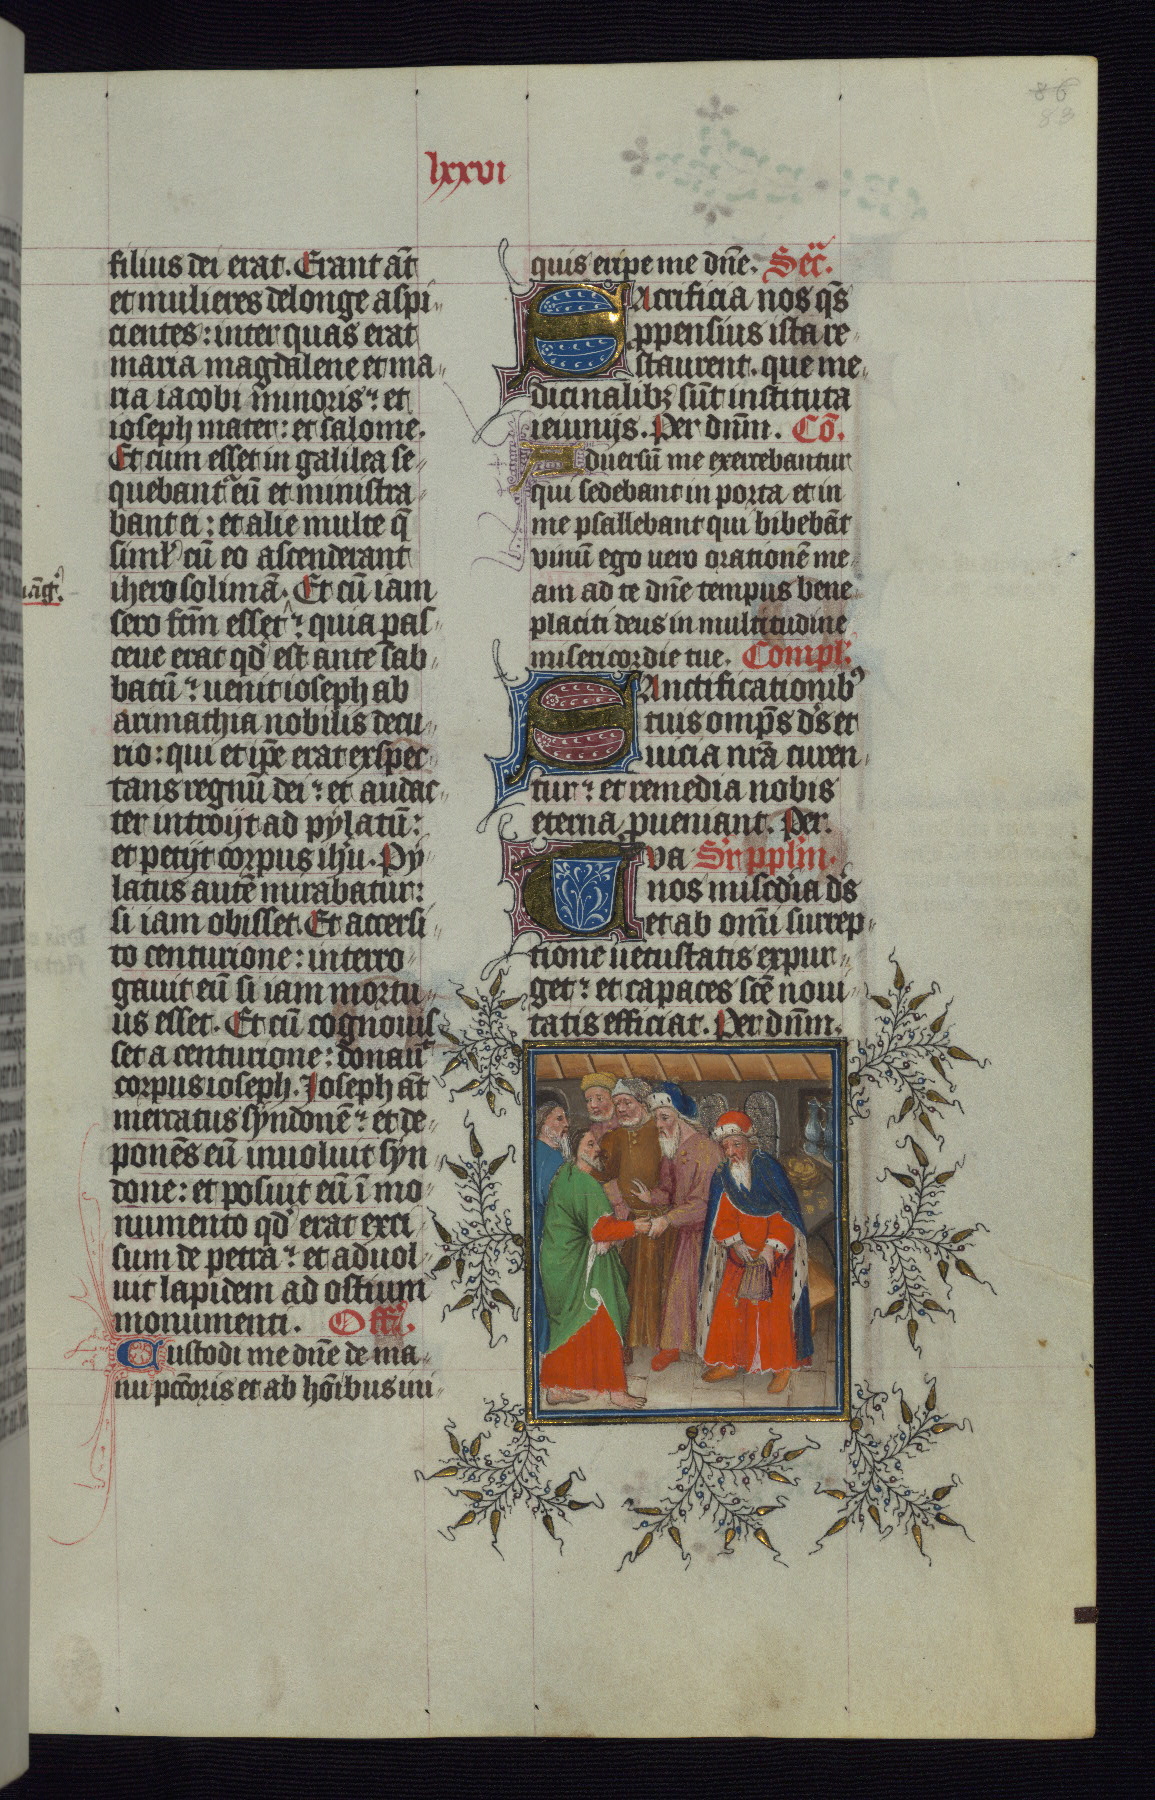 86
83
lxxvi
filius dei erat. Erant at̄
et mulieres delonge aspi
cientes: inter quas erat
maria magdalene et ma
ria iacobi minoris: et
ioseph mater: et salome.
Et cum esset in galilea se
quebant᷑ eū et ministra
bant ei: et alie multe q̄
siml᷑ cū eo ascenderant
iherosolimā. Et cū iam
sero fc̄m esset: quia pas
ceue erat qd᷑ est ante sab
batū: uenit ioseph ab
arimathia nobilis decu
rio: qui et ip̄e erat exspec
tans regnū dei: et audac
ter introijt ad pylatū:
et petijt corpus ihū. Py
latus autē mirabatur:
si iam obisset. Et accersi
to centurione: interro
gauit eū si iam mortu
us esset. Et cū cognouis
set a centurione: donauit
corpus ioseph. Joseph at̄
mercatus syndonē: et de
ponēs eū inuoluit syn
done: et posuit eū ī mo
numento qd᷑ erat exci
sum de petra: et aduol
uit lapidem ad ostium
monumenti. Off.
Custodi me dn̄e de ma
nu pcc̄oris et ab hōībus ini
quis eripe me dn̄e. Secr̄.
SAcrificia nos qs̄
ppensius ista re
staurent. que me
dicinalibꝫ sūt instituta
ieiunijs. Per dn̄m. Cō.
Aduersū me exercebantur
qui sedebant in porta et in
me psallebant qui bibebāt
vinū ego uero orationē me
am ad te dn̄e tempus bene
placiti deus in multitudine
misericordie tue. Compl᷑.
SAnctificationib᷒
tuis omp̄s ds̄ et
uicia nr̄a curen
tur: et remedia nobis
eterna pueniant. Per.
Tva Sr̄ pplm̄.
nos misc̄dīa ds̄
et ab om̄i surrep
tione uetustatis expur
get: et capaces scē noui
tatis efficiat. Per dn̄m.